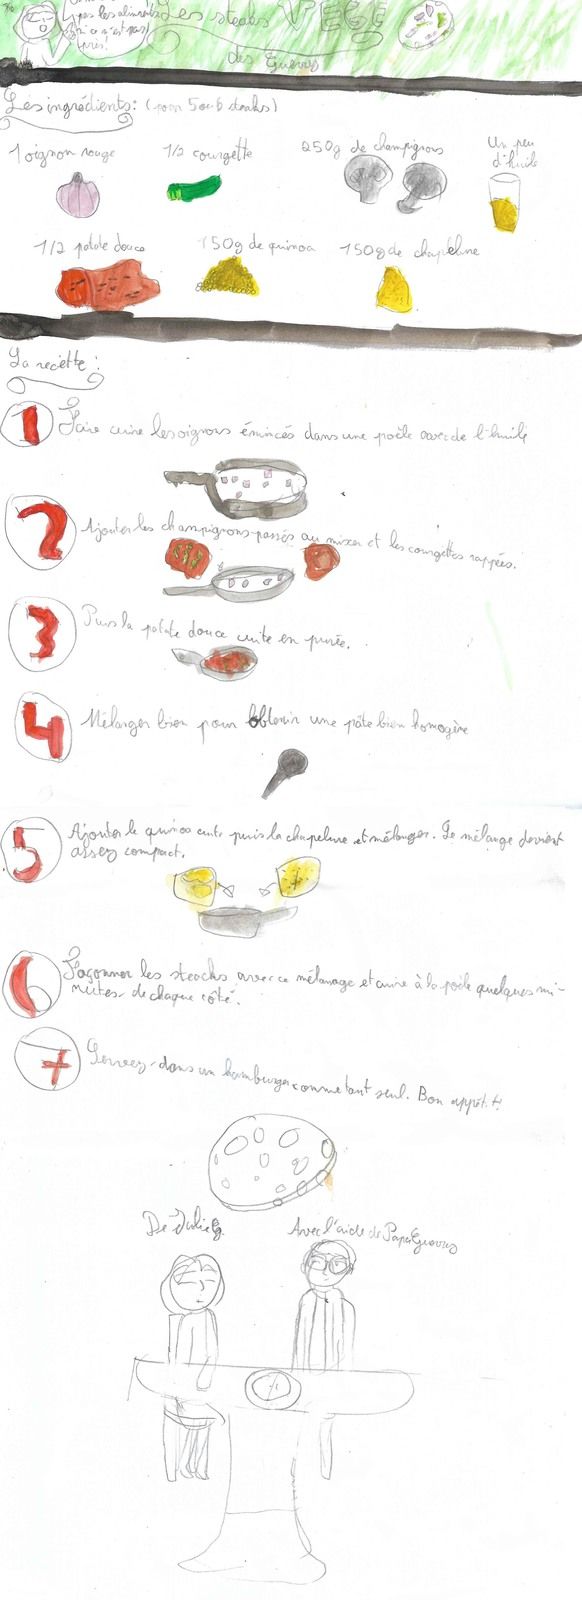 pas les aliments
si ce n'est pas
près!
Les steaks VEGE
des Guerrys
Les ingrédients: (pour 5 ou 6 steaks)
1 oignon rouge
1/2 courgette
250g de champignons
Un peu
d'huile
1/2 patate douce
150g de quinoa
150g de chapelure
La recette:
1 Faire cuire les oignons émincés dans une poêle avec de l'huile
2 Ajouter les champignons passés au mixer et les courgettes rappées.
3 Puis la patate douce cuite en purée.
4 Mélanger bien pour obtenir une pâte bien homogène
5 Ajouter le quinoa cuite puis la chapelure et mélanger. Le mélange devient
assez compact.
6 Façonner les steacks avec ce mélanage et cuire à la poêle quelques mi-
nutes de chaque côté.
7 Servez dans un hamburger comme tout seul. Bon appétit!
De Julie G.
Avec l'aide de Papa Guerrys